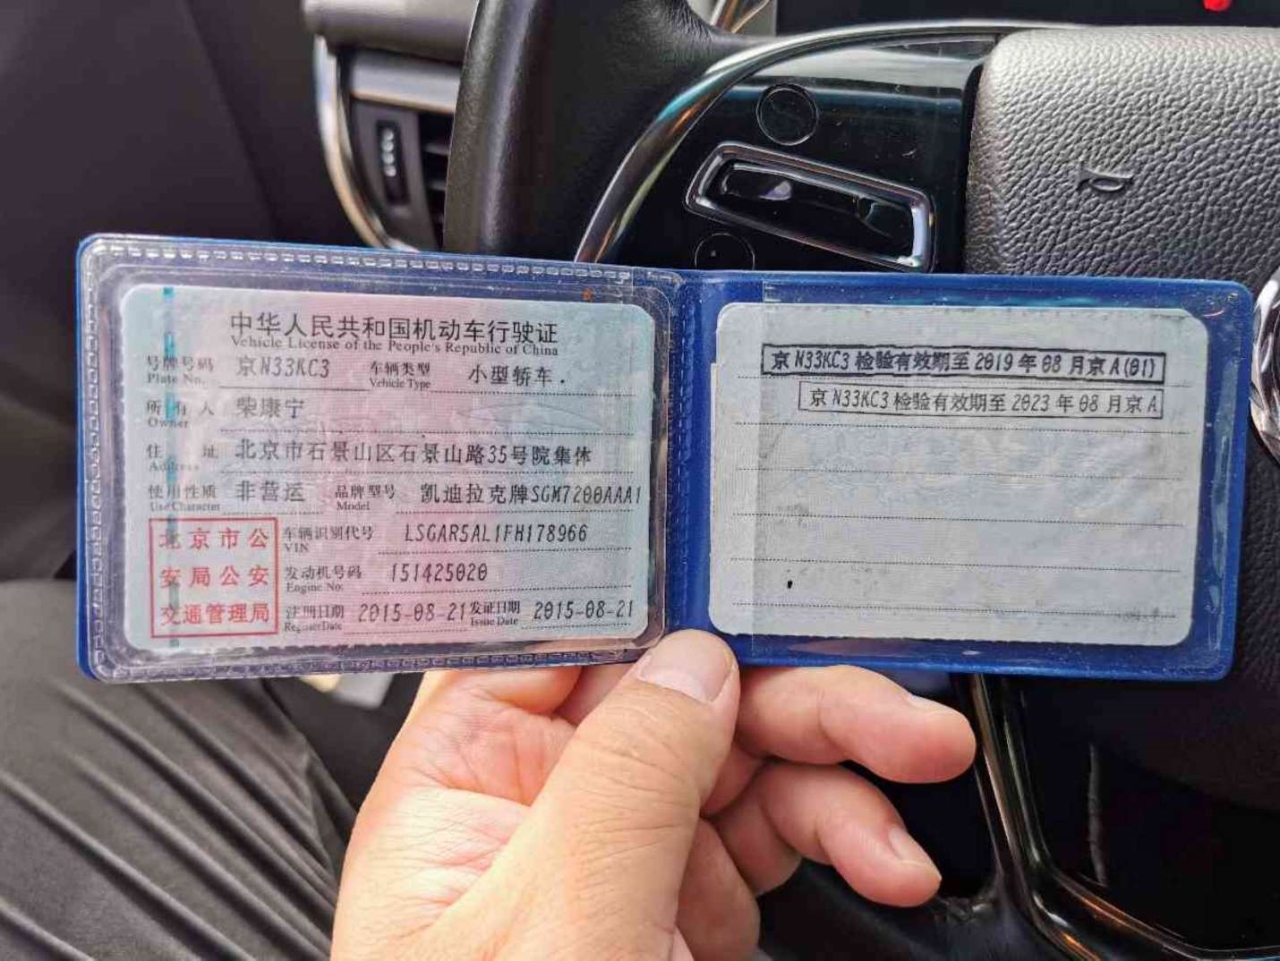 中华人民共和国机动车行驶证
Vehicle License of the People's Republic of China
号牌号码 京N33KC3 车辆类型 小型轿车
Plate No. Vehicle Type
所有人 柴康宁
Owner
住址 北京市石景山区石景山路35号院集体
Address
使用性质 非营运 品牌型号 凯迪拉克牌SGM7200AAA1
Use Character Model
北京市公 车辆识别代号 LSGAR5AL1FH178966
VIN
安局公安 发动机号码 151425020
Engine No.
交通管理局 注册日期 2015-08-21 发证日期 2015-08-21
Register Date Issue Date
京N33KC3检验有效期至2019年08月京A(01)
京N33KC3检验有效期至2023年08月京A